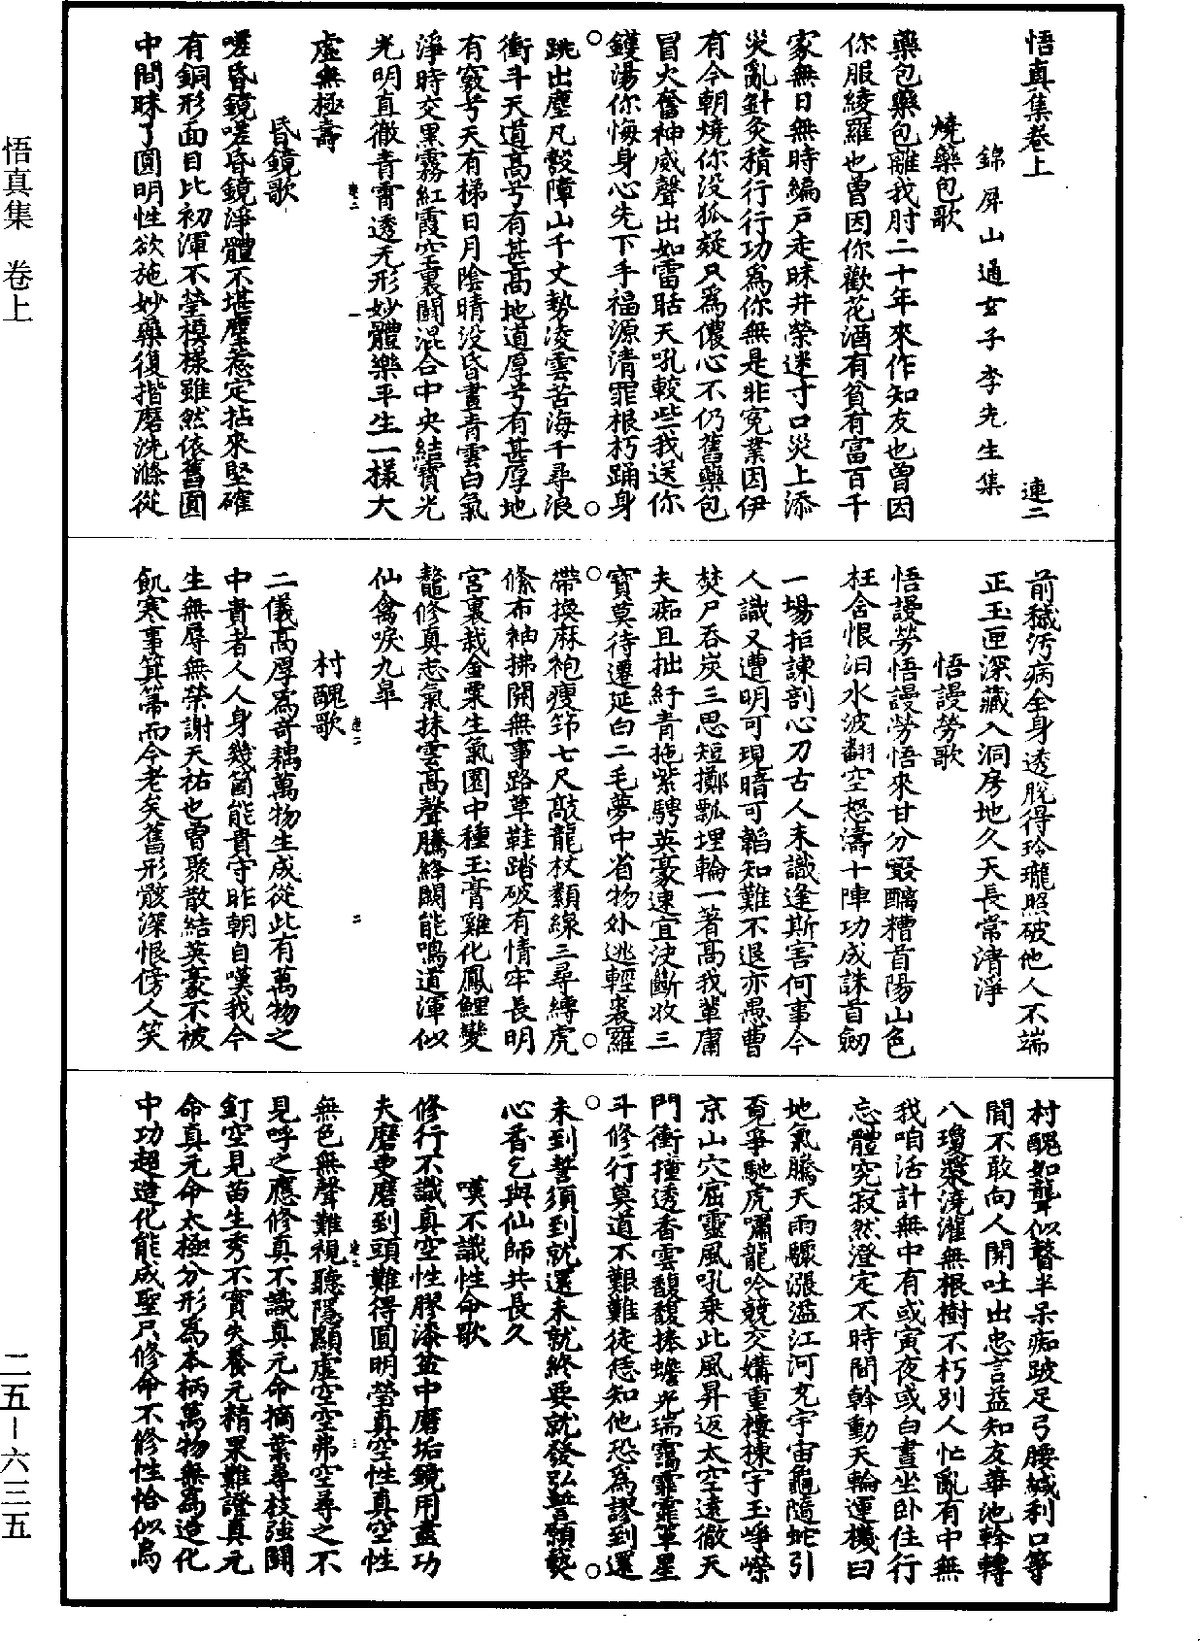 悟真集卷上　連二
錦屏山通玄子李先生集
燒藥包歌
藥包藥包離我肘二十年來作知友也曾因
你服綾羅也曾因你歡花酒有貧有富百千
家無日無時編戶走昧井榮迷寸口災上添
災亂針灸積行行功爲你無是非冤業因伊
有今朝燒你没狐疑只爲儂心不仍舊藥包
冒火奮神威聲出如雷聒天吼較些我送你
鑊湯你悔身心先下手福源清罪根朽踊身
跳出塵凡彀障山千丈勢淩雲苦海千尋浪
衝斗天道高兮有甚高地道厚兮有甚厚地
有竅兮天有梯日月陰晴没昏晝青雲白氣
淨時交黑霧紅霞空裏鬭混合中央結寶光
光明直徹青霄透无形妙體樂平生一樣大
虛無極壽
昏鏡歌
嗟昏鏡嗟昏鏡淨體不堪塵惹定拈來堅確
有銅形面目比初渾不瑩模樣雖然依舊圓
中間昧了圓明性欲施妙藥復揩磨洗滌從
前穢汚病全身透脫得玲瓏照破他人不端
正玉匣深藏入洞房地久天長常清淨
悟謾勞歌
悟謾勞悟謾勞悟來甘分餟醨糟首陽山色
枉含恨汨水波翻空怒濤十陣功成誅首劒
一場拒諫剖心刀古人未識逢斯害何事今
人識又遭明可現暗可韜知難不退亦愚曹
焚尸吞炭三思短擲瓢埋輪一著高我輩庸
夫痴且拙紆青拖紫騁英豪速宜決斷收三
寶莫待遷延白二毛夢中省物外逃輕裘羅
帶換麻袍瘦節七尺敲龍杖纇線三尋縛虎
絛布袖拂開無事路草鞋踏破有情牢長明
宮裏栽金粟生氣園中種玉膏雞化鳳鯉變
鼇修真志氣抹雲高聲騰絳闕能鳴道渾似
仙禽唳九臯
村醜歌
二儀高厚爲奇耦萬物生成從此有萬物之
中貴者人人身幾箇能貴守昨朝自嘆我今
生無辱無榮謝天祐也曾聚散結英豪不被
飢寒事箕箒而今老矣舊形骸深恨傍人笑
村醜如聾似瞽半呆痴跛足弓腰緘利口等
閒不敢向人開吐出忠言益知友華池幹轉
八瓊漿澆灌無根樹不朽別人忙亂有中無
我咱活計無中有或寅夜或白晝坐卧住行
忘體究寂然澄定不時間斡動天輪運機臼
地氣騰天雨驟漲溢江河充宇宙龜隨蛇引
竟爭馳虎嘯龍吟競交媾重樓棟宇玉崢嶸
京山穴窟靈風吼乘此風昇返太空遠徹天
門衝撞透香雲馥馥捧蟾光瑞靄霏霏罩星
斗修行莫道不艱難徒恁知他恐爲謬到還
未到誓須到就還未就終要就發弘誓願藝
心香乞與仙師共長久
嘆不識性命歌
修行不識真空性膠漆盆中磨垢鏡用盡功
夫磨更磨到頭難得圓明瑩真空性真空性
無色無聲難視聽隱顯虛空空弗空尋之不
見呼之應修真不識真元命摘葉尋枝強鬭
釘空見苗生秀不實失養元精果難證真元
命真元命太極分形爲本柄萬物無爲造化
中功超造化能成聖只修命不修性恰似爲
悟真集　卷上
二五－六三五